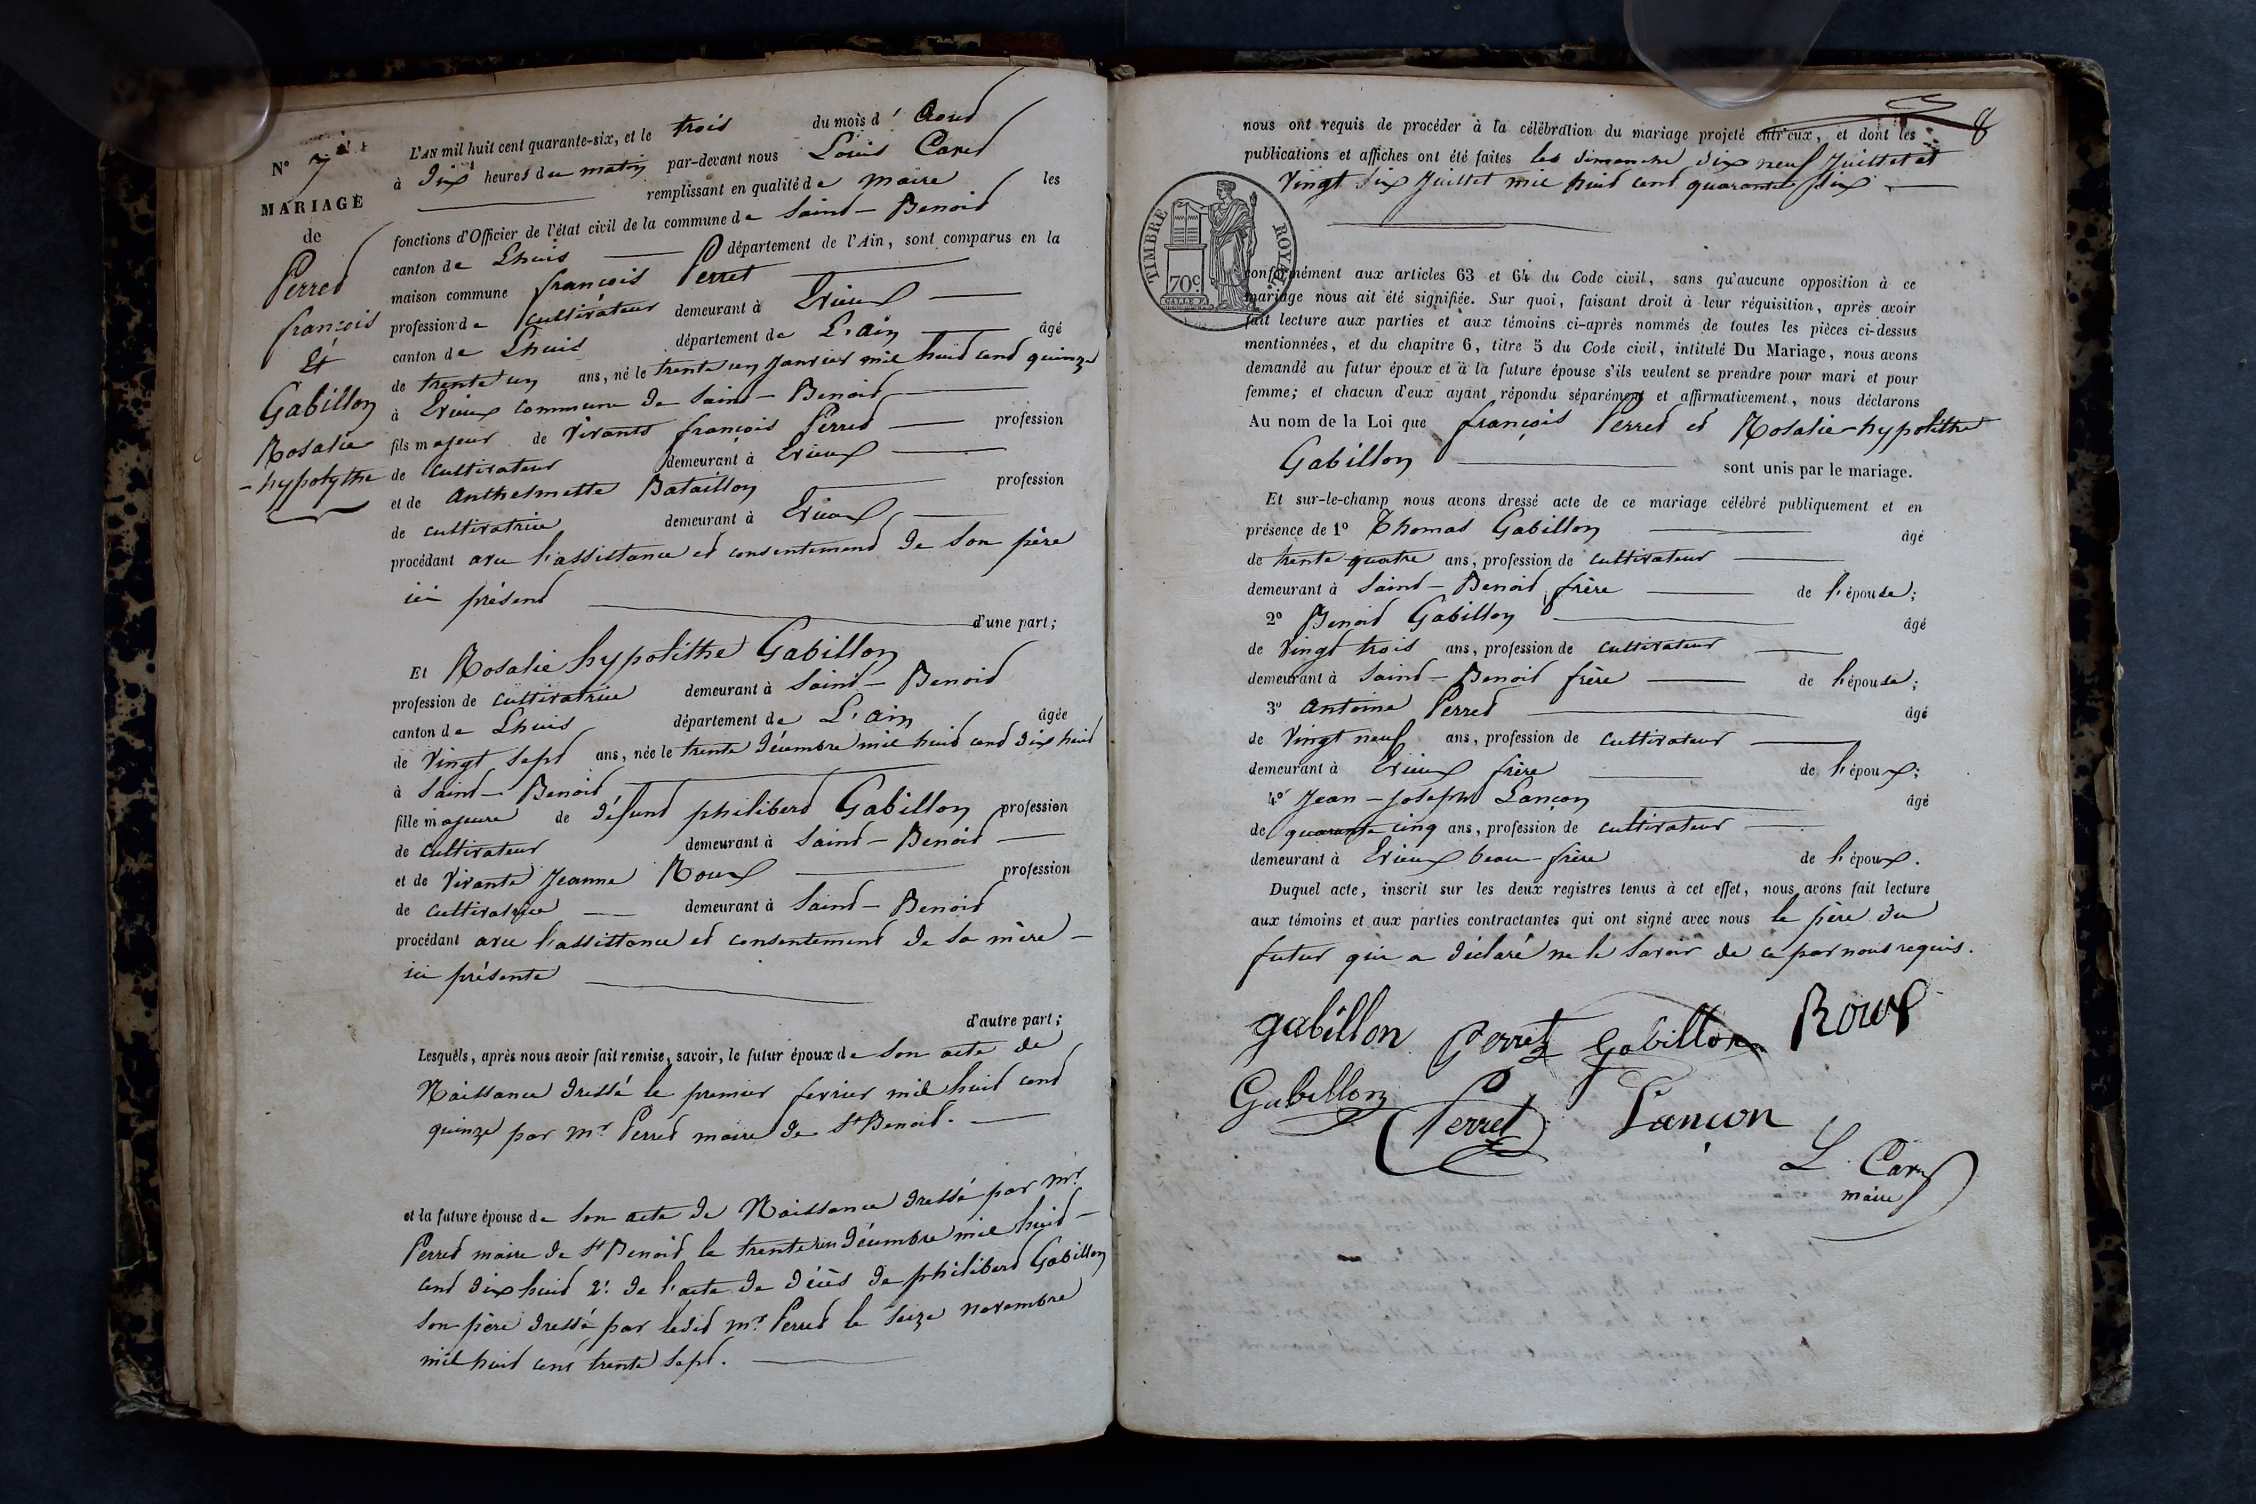 N° 7
MARIAGE
de
Perret
françois
Et
Gabillon
Rosalie
-hypolythe
L'AN mil huit cent quarante-six, et le trois du mois d' Aout
à dix heures du matin par-devant nous Louis Caret
remplissant en qualité de maire les
fonctions d'Officier de l'état civil de la commune de Saint-Benoit
canton de Lhuis département de l'Ain, sont comparus en la
maison commune françois Perret
profession de cultivateur demeurant à Evieux
canton de Lhuis département de L'ain âgé
de trente un ans, né le trente un Janvier mil huit cent quinze
à Evieux commune de Saint-Benoit
fils majeur de vivants françois Perret profession
de cultivateur demeurant à Evieux
et de Anthelmette Bataillon profession
de cultivatrice demeurant à Evieux
procédant avec l'assistance et consentement de son père
ici présent
d'une part;
Et Rosalie hypolithe Gabillon
profession de cultivatrice demeurant à Saint-Benoit
canton de Lhuis département de L'ain âgée
de vingt sept ans, née le trente décembre mil huit cent dix huit
à Saint-Benoit
fille majeure de défunt philibert Gabillon profession
de cultivateur demeurant à Saint-Benoit
et de vivante Jeanne Roux profession
de cultivatrice demeurant à Saint-Benoit
procédant avec l'assistance et consentement de sa mère
ici présente
d'autre part;
Lesquels, après nous avoir fait remise, savoir, le futur époux de son acte de
Naissance dressé le premier fevrier mil huit cent
quinze par mr Perret maire de St Benoit.
et la future épouse de son acte de Naissance dressé par mr.
Perret maire de St Benoit le trente un décembre mil huit
cent dix huit 2: de l'acte de décès de philibert Gabillon
son père dressé par ledit mr. Perret le seize novembre
mil huit cent trente sept.
8
nous ont requis de procéder à la célébration du mariage projeté entr'eux, et dont les
publications et affiches ont été faites les dimanche dix neuf Juillet et
vingt six Juillet mil huit cent quarante six
TIMBRE ROYAL
70c
conformément aux articles 63 et 64 du Code civil, sans qu'aucune opposition à ce
mariage nous ait été signifiée. Sur quoi, faisant droit à leur réquisition, après avoir
fait lecture aux parties et aux témoins ci-après nommés de toutes les pièces ci-dessus
mentionnées, et du chapitre 6, titre 5 du Code civil, intitulé Du Mariage, nous avons
demandé au futur époux et à la future épouse s'ils veulent se prendre pour mari et pour
femme; et chacun d'eux ayant répondu séparément et affirmativement, nous déclarons
Au nom de la Loi que françois Perret et Rosalie-hypolithe
Gabillon sont unis par le mariage.
Et sur-le-champ nous avons dressé acte de ce mariage célébré publiquement et en
présence de 1° Thomas Gabillon âgé
de trente quatre ans, profession de cultivateur
demeurant à Saint-Benoit frère de l'épouse;
2° Benoit Gabillon âgé
de vingt trois ans, profession de cultivateur
demeurant à Saint-Benoit frère de l'épouse;
3° antoine Perret âgé
de vingt neuf ans, profession de cultivateur
demeurant à Evieux frère de l'époux;
4° Jean-Joseph Lançon âgé
de quarante cinq ans, profession de cultivateur
demeurant à Evieux beau-frère de l'époux.
Duquel acte, inscrit sur les deux registres tenus à cet effet, nous avons fait lecture
aux témoins et aux parties contractantes qui ont signé avec nous le père du
futur qui a déclaré ne le savoir de ce par nous requis.
gabillon Perret Gabillon Roux
Gabillon Perret Lançon
L. Caret
maire